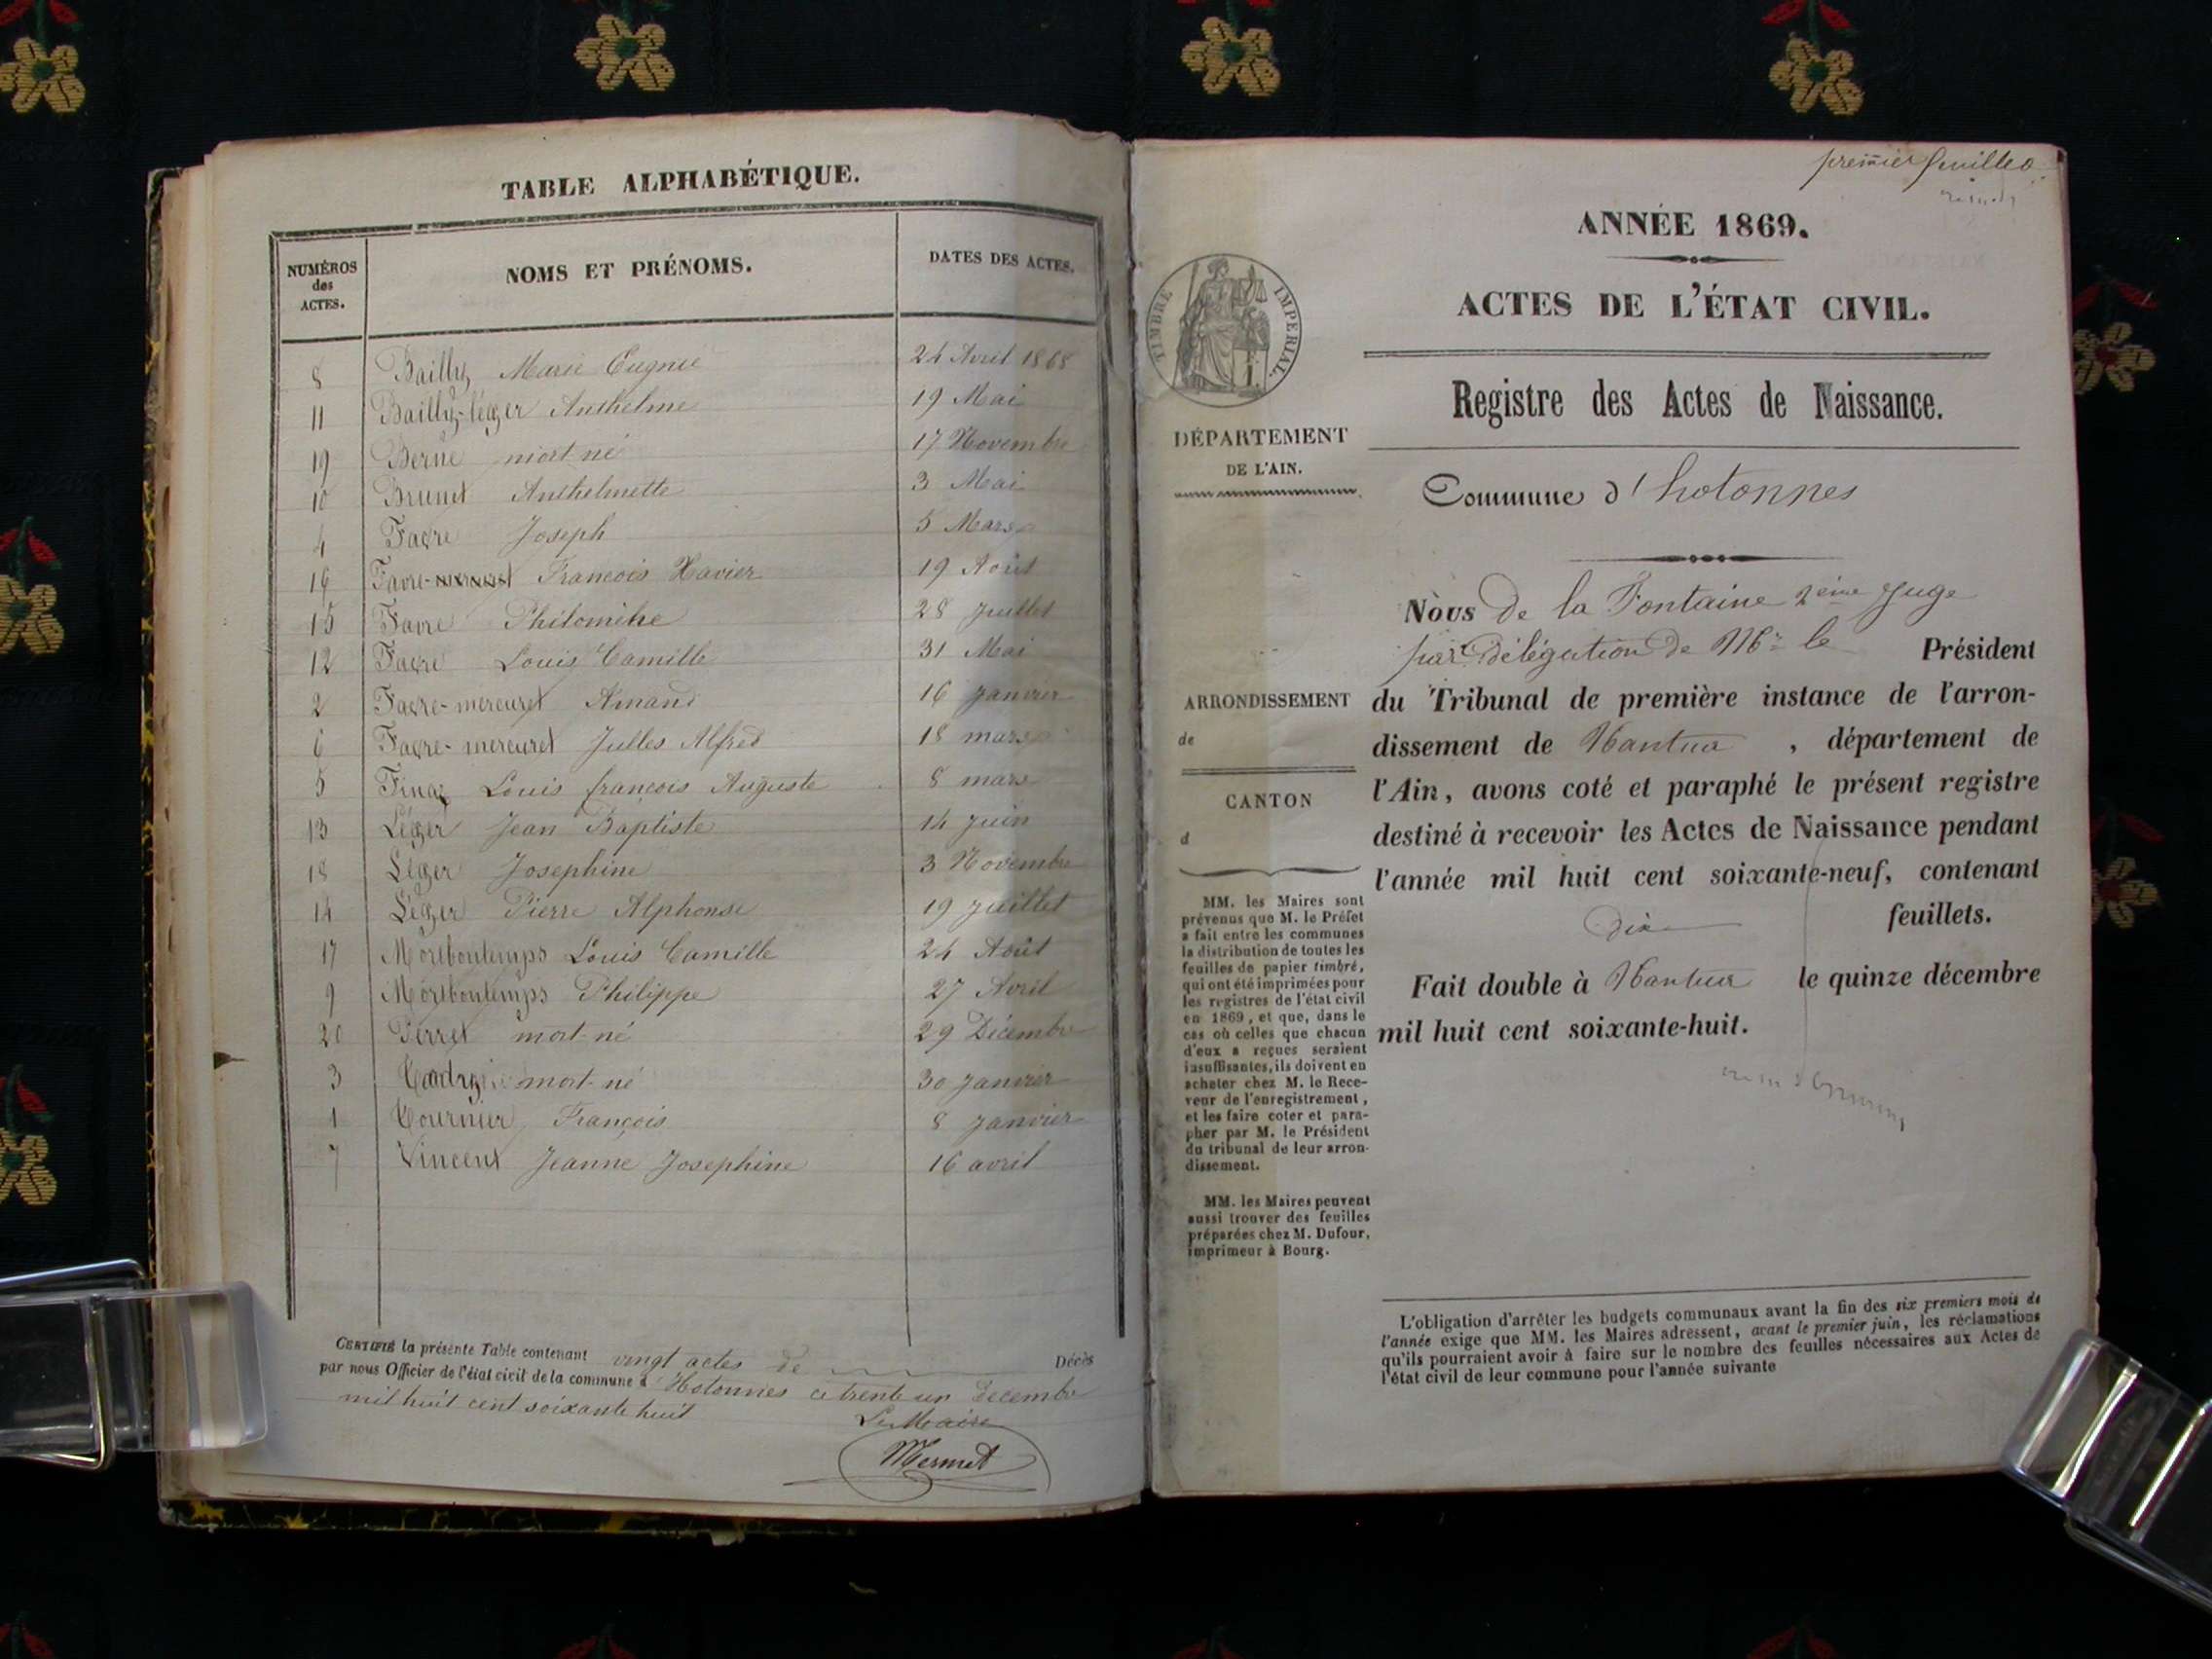 TABLE ALPHABÉTIQUE.
NUMÉROS des ACTES. NOMS ET PRÉNOMS. DATES DES ACTES.
8 Bailly Marie Eugnie 24 Avril 1868
11 Bailly-léger Anthelme 19 Mai
19 Berne mort né 17 Novembre
10 Brunet Anthelmette 3 Mai
4 Favre Joseph 5 Mars
16 Favre- François Xavier 19 Août
15 Favre Philomène 28 Juillet
12 Favre Louis Camille 31 Mai
2 Favre-mercuret Amand 16 Janvier
6 Favre-mercuret Julles Alfred 18 mars
5 Finaz Louis françois Auguste 8 mars
13 Léger Jean Baptiste 14 Juin
18 Léger Josephine 3 Novembre
14 Léger Pierre Alphonse 19 Juillet
17 Mortboutemps Louis Camille 24 Août
9 Mortboutemps Philippe 27 Avril
20 Perret mort-né 29 Décembre
3 mort-né 30 Janvier
1 Tournier François 8 Janvier
7 Vincent Jeanne Josephine 16 avril
CERTIFIÉ la présente Table contenant vingt actes de Décès
par nous Officier de l'état civil de la commune d'Hotonnes ce trente un Decembre
mil huit cent soixante huit
Le Maire
Mermet
premier feuillet
ANNÉE 1869.
ACTES DE L'ÉTAT CIVIL.
TIMBRE IMPERIAL.
Registre des Actes de Naissance.
DÉPARTEMENT
DE L'AIN.
Commune d'hotonnes
Nous de la Fontaine 2ème Juge
par délégation de Mr le Président
du Tribunal de première instance de l'arron-
dissement de Nantua, département de
l'Ain, avons coté et paraphé le présent registre
destiné à recevoir les Actes de Naissance pendant
l'année mil huit cent soixante-neuf, contenant
dix feuillets.
Fait double à Nantua le quinze décembre
mil huit cent soixante-huit.
ARRONDISSEMENT
de
CANTON
d
MM. les Maires sont
prévenus que M. le Préfet
a fait entre les communes
la distribution de toutes les
feuilles de papier timbré,
qui ont été imprimées pour
les registres de l'état civil
en 1869, et que, dans le
cas où celles que chacun
d'eux a reçues seraient
insuffisantes, ils doivent en
acheter chez M. le Rece-
veur de l'enregistrement,
et les faire coter et para-
pher par M. le Président
du tribunal de leur arron-
dissement.
MM. les Maires peuvent
aussi trouver des feuilles
préparées chez M. Dufour,
imprimeur à Bourg.
L'obligation d'arrêter les budgets communaux avant la fin des six premiers mois de
l'année exige que MM. les Maires adressent, avant le premier juin, les réclamations
qu'ils pourraient avoir à faire sur le nombre des feuilles nécessaires aux Actes de
l'état civil de leur commune pour l'année suivante